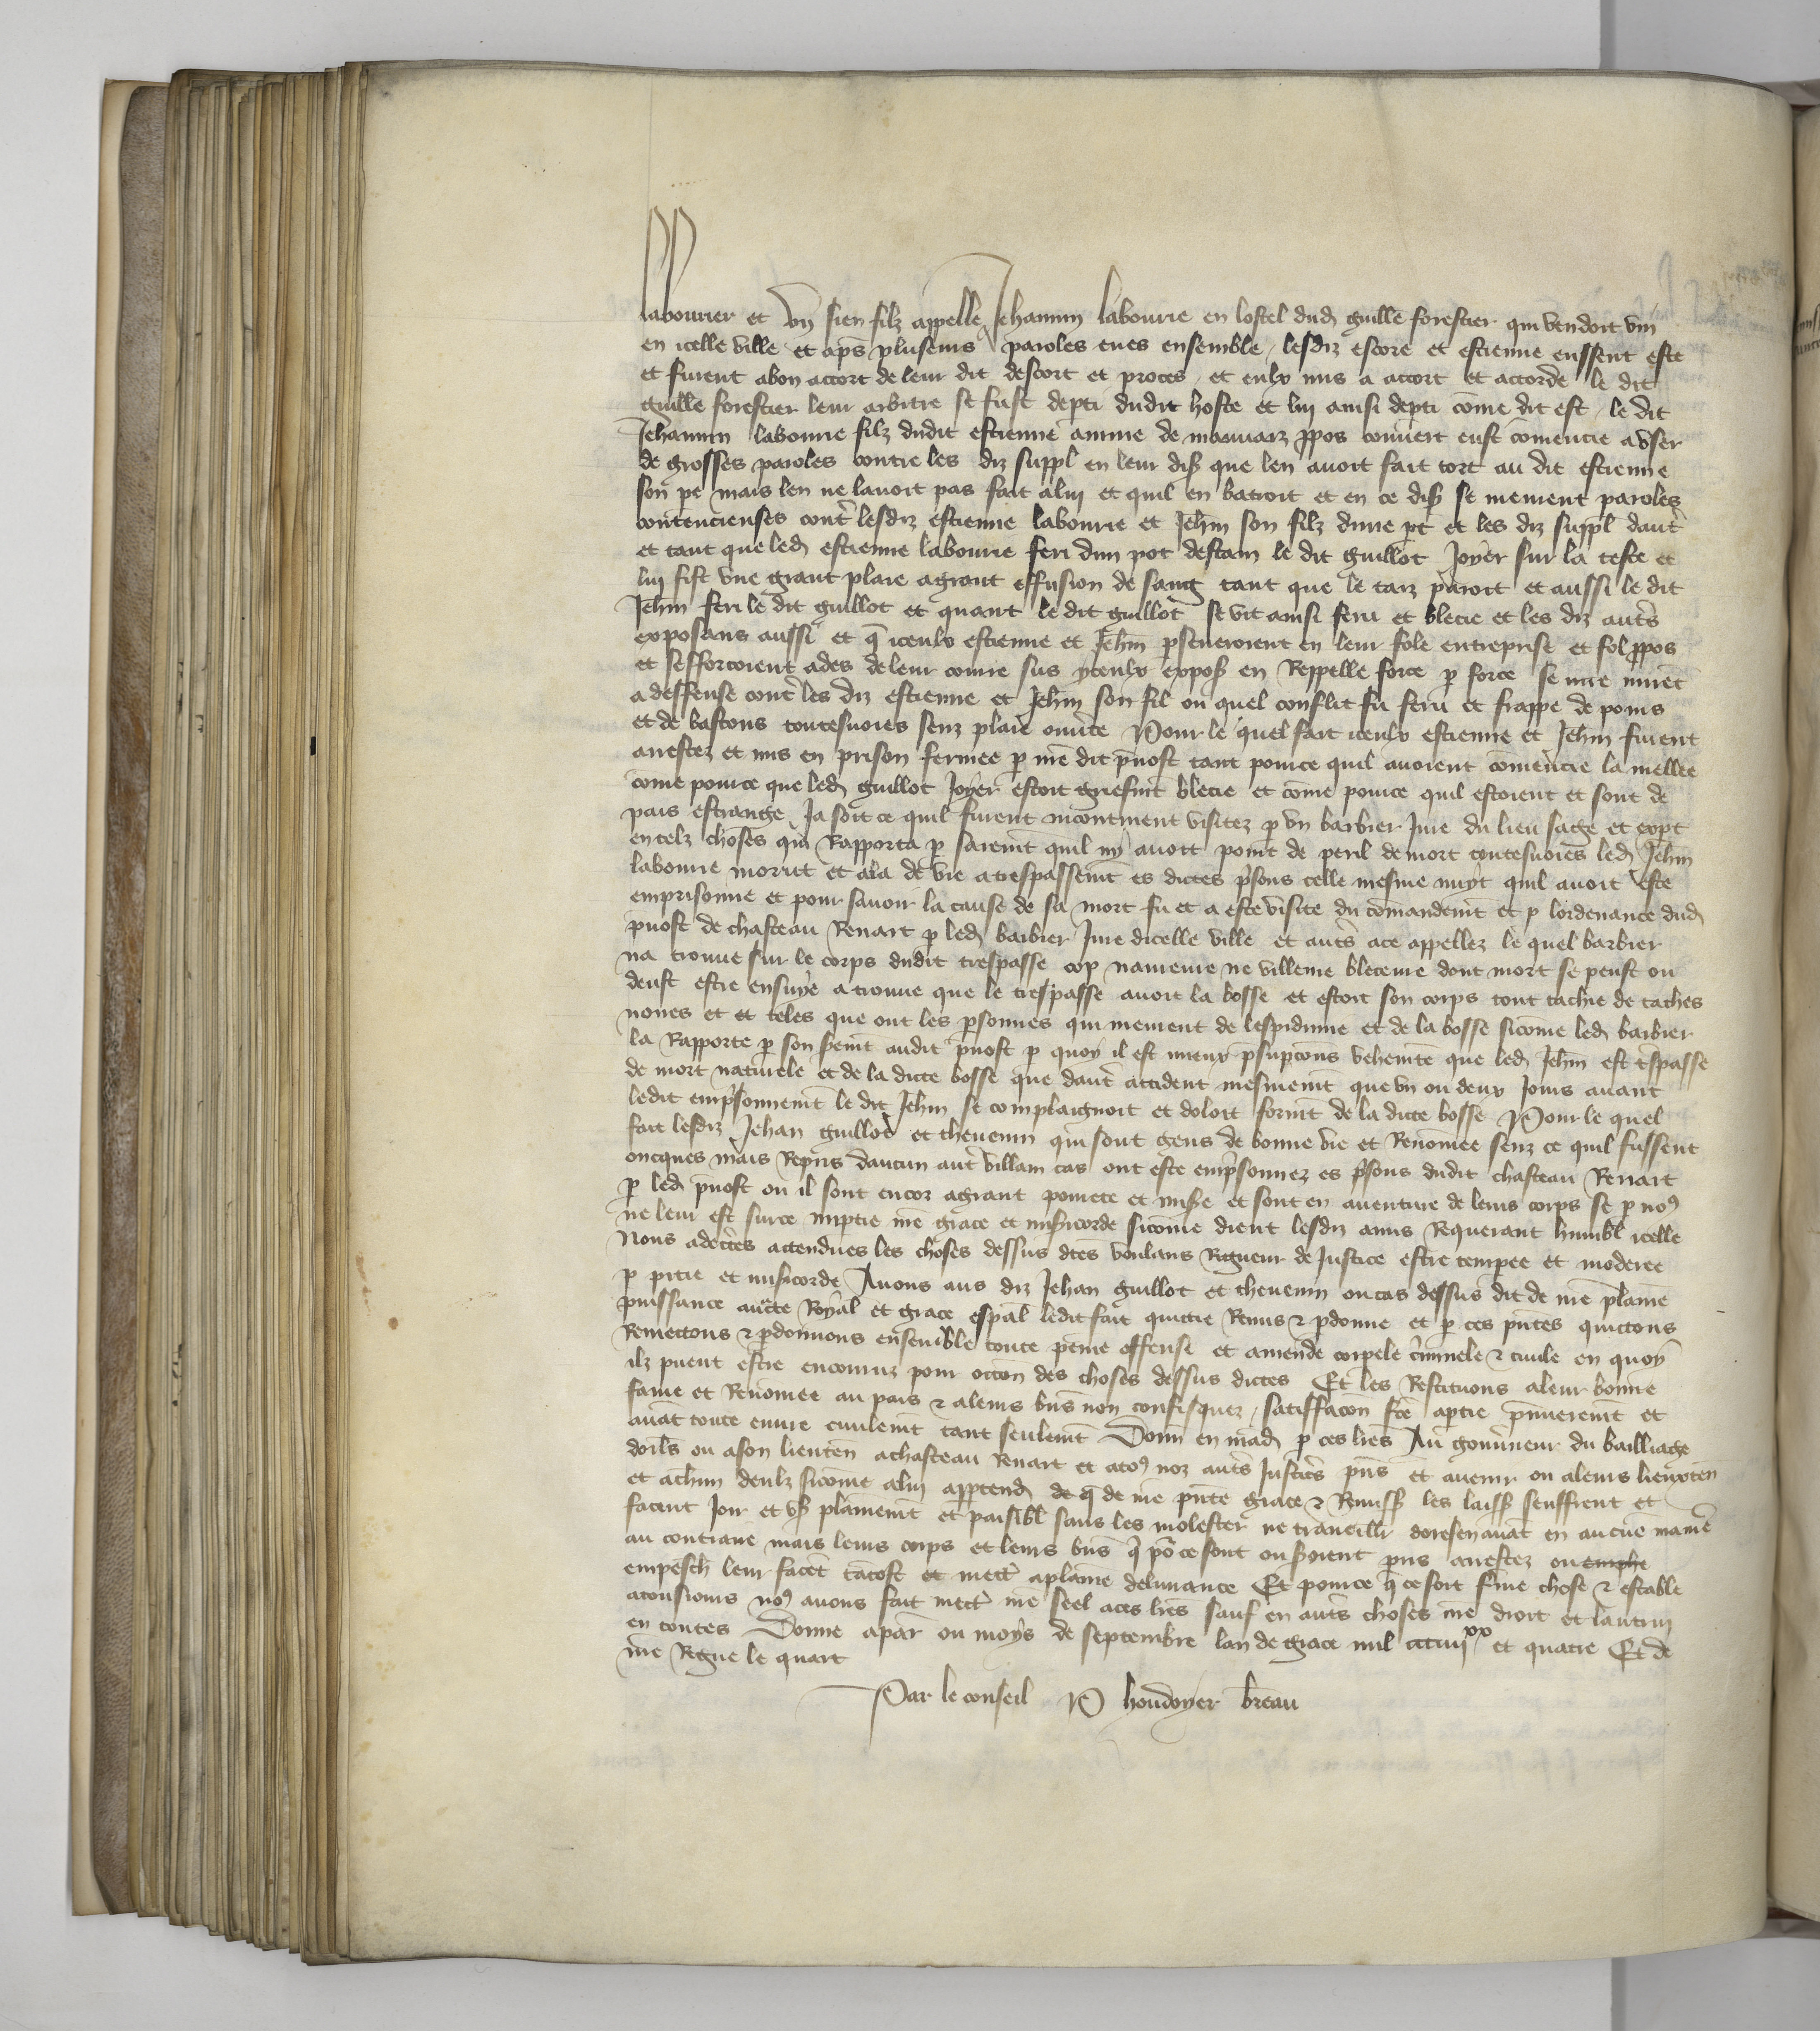 labourier et un sien filz appelle Jehannin labourie en lostel dud guille forestier qui vendoit vin
en icelle ville et aps plusieurs paroles eues ensemble lesdiz escore et estienne eussent este
et furent a bon accort de leur dit descort et proces et eulx mis a accort et accorde le dit
guille forestier leur arbitre se fust depti dudit hoste et lui ainsi depti come dit est le dit
Jehannin labourie filz dudit estienne anime de mauuaiz ppos conuert eust comencie a user
de grosses paroles contre les diz suppl en leur dis que len auoit fait tort au dit estienne
son pe mais len ne lauoit pas fait a lui et quil en batroit et en ce dis se meurent paroles
contencieuses cont lesdiz estienne labourie et Jehin son filz dune pt et les diz suppl daut
et tant que led estienne labourie feri dun pot destain le dit guillot Joyer sur la teste et
lui fist une grant plaie a grant effusion de sang tant que le tarz paroit et aussi le dit
Jehin feri le dit guillot et quant le dit guillot se vit ainsi feru et blecie et les diz auts
exposans aussi et q iceulx estienne et Jehin pseueroient en leur fole entreprise et fol ppos
et sefforcoient ades de leur courre sus yceulx expos en Rappelle force p force se mirent
a deffense cont les diz estienne et Jehin son fil ou quel conflit fu feru et frappe de poins
et de bastons toutesuoies senz plaie ouute Pour le quel fait iceulx estienne et Jehin furent
arrestez et mis en prison fermee p nre dit puost tant pource quil auoient comencie la mellee
come pource que led guillot Joyer estoit griefmt blecie et come pource quil estoient et sont de
pais estrange Ja soit ce quil furent incontinent visitez p un barbier Jure du lieu sage et expt
en telz choses qui Rapporta p sairemt quil ny auoit point de peril de mort toutesuoies led Jehin
labourie morut et ala de vie a trespassemt es dictes psons celle mesme nuyt quil auoit este
emprisonne et pour sauoir la cause de sa mort fu et a este visite du comandemt et p lordenance dud
puost de chasteau Renart p led barbier Jure dicelle ville et auts a ce appellez le quel barbier
na trouue sur le corps dudit trespasse cop naureure ne villeine bleceure dont mort se peust ou
deust estre ensuye a trouue que le trespasse auoit la bosse et estoit son corps tout tachie de taches
noires et et teles que ont les psonnes qui meurent de lespidimie et de la bosse sicome led barbier
la Rapporte p son semt audit puost p quoy il est mieux psuptions vehemte que led Jehin est tspasse
de mort naturele et de la dicte bosse que daut accident mesmemt que un ou deux Jours auant
ledit emprisonnemt le dit Jehin se complaignoit et doloit formt de la dicte bosse Pour le quel
fait lesdiz Jehan guillot et theuenin qui sont gens de bonne vie et Renomee senz ce quil fussent
oncques mais Repris daucun aut villain cas ont este emprisonnez es psons dudit chasteau Renart
p led puost ou il sont encor a grant pourete et mise et sont en auenture de leurs corps se p nous
ne leur est sur ce impartie nre grace et misicorde sicome dient lesdiz amis Requerant humbl icelle
Nous adectes attendues les choses dessus dtes voulans Rigueur de Justice estre tempee et moderee
p pitie et misicorde Auons aus diz Jehan guillot et theuenin ou cas dessus dit de nre plaine
puissance aucte Royal et grace espal ledit fait quictie Remis & pdonne et p ces pntes quictons
Remettons & pdonnons ensemble toute peine offense et amende corpele criminele & ciuile en quoy
ilz puent estre encouruz pour occon des choses dessus dictes Et les Restituons a leur bonne
fame et Renomee au pais & a leurs bns non confisquez satisffacon fce a ptie pmierement et
auat toute euure ciuilemt tant seulemt Donn en mad p ces lres Au gouuneur du bailliage
dorlns ou a son lieuten a chasteau Renart et a tos noz auts Justiciers pns et auenir ou a leurs lieuxten
et a chun deulz sicome a lui apptend de q de nre pnte grace & Remiss les laiss seuffrent et
facent Joir et us plainemt et paisibl sans les molester ne trauillr doresenauat en aucue maniere
au contraire mais leurs corps et leurs bns q pour ce sont ou soient pris arrestez ou emphe
empesch leur facet tatost et mect a plaine deliurance Et pource q ce soit ferme chose & estable
a tousiours nos auons fait mect nre seel a ces lres sauf en auts choses nre droit et lautrui
en toutes Donne a par ou moys de septembre lan de grace mil ccciiiixx et quatre Et de
nre Regne le quart
Par le conseil P houdoyer breau